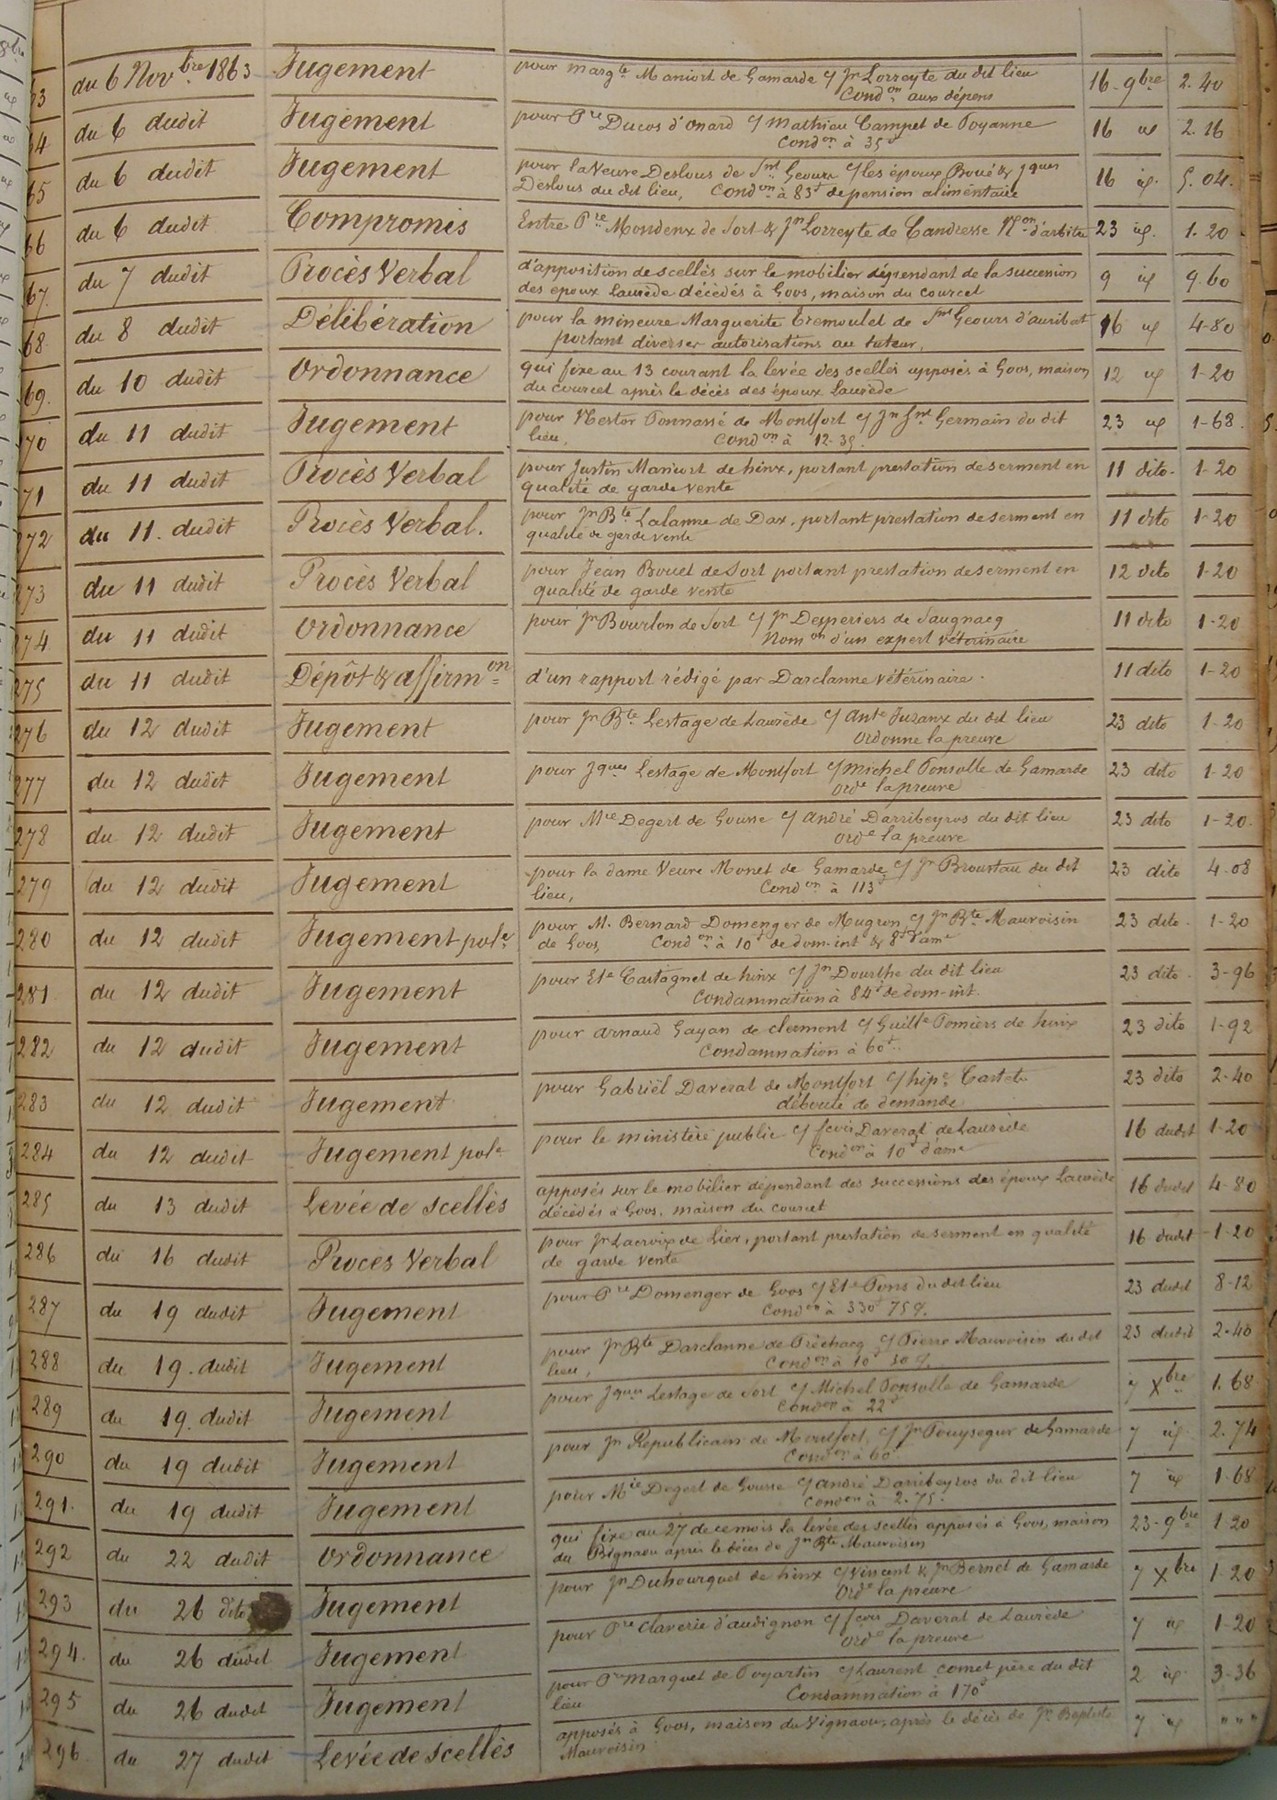 63 du 6 Novbre 1863 Jugement pour Margte Maniort de Gamarde c/ Jn Lorreyte du dit lieu 16 9bre 2.40
Condon aux dépens
64 du 6 dudit Jugement pour Pre Ducos d'onard c/ Mathieu Campet de Poyanne 16 id 2.16
Condon à 35f
65 du 6 dudit Jugement pour la Veuve Deslous de Snt Geours c/ les époux Boué & Jques 16 id. 5.04.
Deslous du dit lieu, Condon à 83f de pension alimentaire
66 du 6 dudit Compromis Entre Pre Mondenx de Sort & Jn Lorreyte de Candresse Non d'arbitre 23 id. 1.20
67. du 7 dudit Procès Verbal d'apposition de scellés sur le mobilier dépendant de la succession 9 id 9.60
des époux Laurède décédés à Goos, maison du courcet
68 du 8 dudit Délibération pour la mineure Marguerite Tremoulet de Snt Geours d'auribat 16 id 4-80
portant diverses autorisations au tuteur,
69. du 10 dudit Ordonnance qui fixe au 13 courant la levée des scellés apposés à Goos, maison 12 id 1-20
du courcet après le décès des époux Laurède
70 du 11 dudit Jugement pour Nestor Ponnassé de Montfort c/ Jn Snt Germain du dit 23 id 1-68.
lieu, Condon à 12-35.
71 du 11 dudit Procès Verbal pour Justin Maniort de hinx, portant prestation de serment en 11 dito- 1-20
qualité de garde vente
272 du 11. dudit Procès Verbal. pour Jn Bte Lalanne de Dax, portant prestation de serment en 11 dito 1-20
qualité de garde vente
273 du 11 dudit Procès Verbal pour Jean Bouet de Sort portant prestation de serment en 12 dito 1-20
qualité de garde vente
274 du 11 dudit Ordonnance pour Jn Bourlon de Sort c/ Jn Desperiers de Saugnacq 11 dito 1-20
Nomon d'un expert vétérinaire
275 du 11 dudit Dépôt & affirmon d'un rapport rédigé par Darclanne vétérinaire. 11 dito 1-20
276 du 12 dudit Jugement pour Jn Bte Lestage de Laurède c/ Ante Juzanx du dit lieu 23 dito 1-20
Ordonne la preuve
277 du 12 dudit Jugement pour Jques Lestage de Montfort c/ Michel Ponsolle de Gamarde 23 dito 1-20
orde la preuve
278 du 12 dudit Jugement pour Mie Degert de Gousse c/ André Darribeyros du dit lieu 23 dito 1-20.
orde la preuve
279 du 12 dudit Jugement pour la dame Veuve Monet de Gamarde c/ Jn Broustau du dit 23 dito 4-08
lieu, Condon à 113f
280 du 12 dudit Jugement pole pour M. Bernard Domenger de Mugron, c/ Jn Bte Mauvoisin 23 dito- 1-20
de Goos, Condon à 10f de dom-int & 8f d'ame
281. du 12 dudit Jugement pour Ete Castagnet de hinx c/ Jn Dourthe du dit lieu 23 dito- 3-96
Condamnation à 84f de dom-int.
282 du 12 dudit Jugement pour Arnaud Gayan de clermont c/ Guille Pomiers de hinx 23 dito 1-92
Condamnation à 60f
283 du 12 dudit Jugement pour Gabriël Daverat de Montfort c/ hipe Castets 23 dito 2-40
débouté de demande
284 du 12 dudit Jugement pole pour le ministère public c/ fcois Daverat de Laurède 16 dudit 1-20
Condon à 10f d'ame
285 du 13 dudit Levée de Scellés apposés sur le mobilier dépendant des successions des époux Laurède 16 dudit 4-80
décédés à Goos, maison du courcet
286 du 16 dudit Procès Verbal pour Jn Lacroix de Lier, portant prestation de serment en qualité 16 dudit 1-20
de garde vente
287 du 19 dudit Jugement pour Pre Domenger de Goos c/ Ete Pons du dit lieu 23 dudit 8-12
Condon à 330f 75c.
288 du 19. dudit Jugement pour Jn Bte Darclanne de Préchacq c/ Pierre Mauvoisin du dit 23 dudit 2-40
lieu, Condon à 10f 50c.
289 du 19. dudit Jugement pour Jques Lestage de Sort c/ Michel Ponsolle de Gamarde 7 Xbre 1.68
Condon à 22f
290 du 19 dudit Jugement pour Jn Republicain de Montfort, c/ Jn Pouysegur de Gamarde 7 id. 2.74
Condon à 60f
291. du 19 dudit Jugement pour Mie Degert de Gousse c/ André Darribeyros du dit lieu 7 id 1-68
Condon à 2.75.
292 du 22 dudit Ordonnance qui fixe au 27 de ce mois la levée des scellés apposés à Goos, maison 23-9bre 1-20
du Bignaou après le décès de Jn Bte Mauvoisin
293 du 26 dito Jugement pour Jn Duhourquet de hinx c/ Vincent & Jn Bernet de Gamarde 7 Xbre 1-20
Orde la preuve
294. du 26 dudit Jugement pour Pre Claverie d'audignon c/ fcois Daverat de Laurède 7 id 1-20
orde la preuve
295 du 26 dudit Jugement pour Pre Marquet de Poyartin c/ Laurent Comet père du dit 2 id. 3-36
lieu Condamnation à 170f
296 du 27 dudit Levée de Scellés apposés à Goos, maison du Vignaou, après le décès de Jn Baptiste 7 id " " "
Mauvoisin